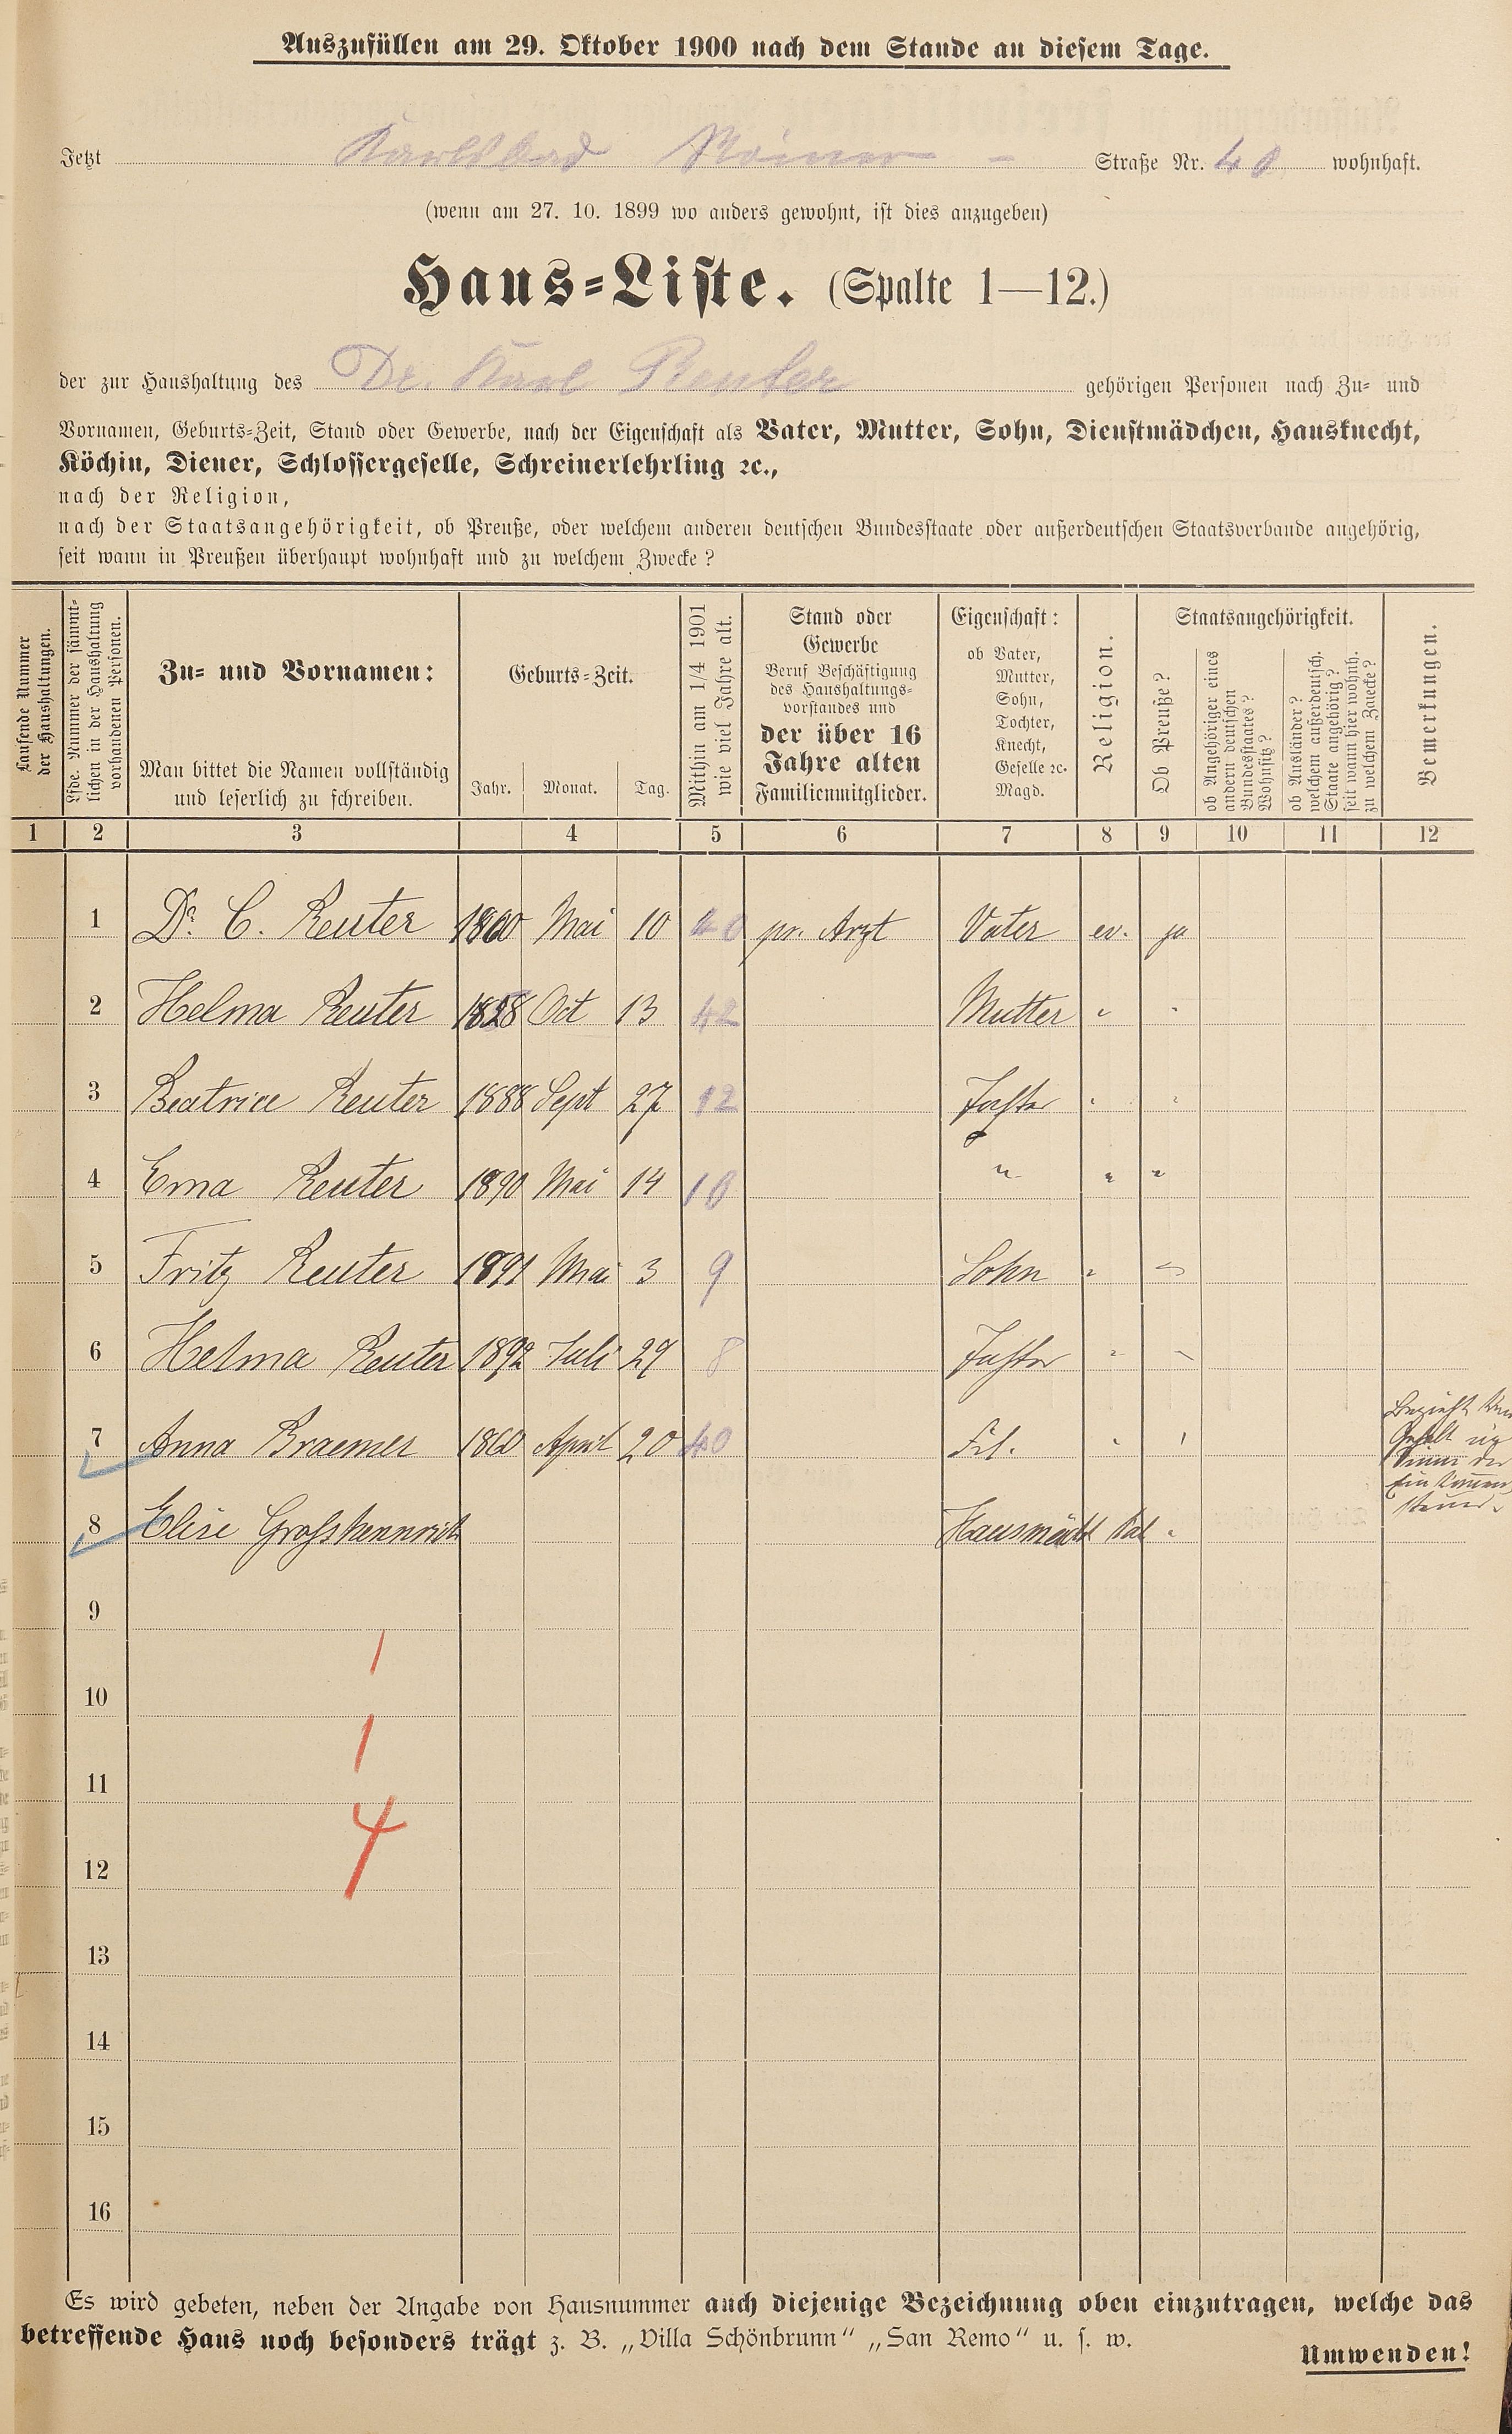 Auszufüllen am 29. Oktober 1900 nach dem Stande an diesem Tage.
Jetzt Karlsbad Römer - Straße Nr. 40 wohnhaft.
(wenn am 27. 10. 1899 wo anders gewohnt, ist dies anzugeben)
Haus-Liste. (Spalte 1—12.)
der zur Haushaltung des Dr. Karl Reuter gehörigen Personen nach Zu- und
Vornamen, Geburts-Zeit, Stand oder Gewerbe, nach der Eigenschaft als Vater, Mutter, Sohn, Dienstmädchen, Hausknecht,
Köchin, Diener, Schlossergeselle, Schreinerlehrling ꝛc.,
nach der Religion,
nach der Staatsangehörigkeit, ob Preuße, oder welchem anderen deutschen Bundesstaate oder außerdeutschen Staatsverbande angehörig,
seit wann in Preußen überhaupt wohnhaft und zu welchem Zwecke?
Laufende Nummer
der Haushaltungen.
Lfde. Nummer der sämmt-
lichen in der Haushaltung
vorhandenen Personen.
Zu- und Vornamen:
Man bittet die Namen vollständig
und leserlich zu schreiben.
Geburts-Zeit.
Jahr. Monat. Tag.
Mithin am 1/4 1901
wie viel Jahre alt.
Stand oder
Gewerbe
Beruf Beschäftigung
des Haushaltungs-
vorstandes und
der über 16
Jahre alten
Familienmitglieder.
Eigenschaft:
ob Vater,
Mutter,
Sohn,
Tochter,
Knecht,
Geselle ꝛc.
Magd.
Religion.
Staatsangehörigkeit.
Ob Preuße?
ob Angehöriger eines
andern deutschen
Bundesstaates?
Wohnsitz?
ob Ausländer?
welchem außerdeutsch.
Staate angehörig?
seit wann hier wohnh.
zu welchem Zwecke?
Bemerkungen.
1 2 3 4 5 6 7 8 9 10 11 12
1 Dr. C. Reuter 1860 Mai 10 40 pr. Arzt Vater ev. ja
2 Helma Reuter 1858 Oct 13 42 Mutter " "
3 Beatrice Reuter 1888 Sept 27 12 Tochter " "
4 Erna Reuter 1890 Mai 14 10 " " "
5 Fritz Reuter 1891 Mai 3 9 Sohn " "
6 Helma Reuter 1892 Juli 29 8 Tochter " "
7 Anna Braemer 1860 April 20 40 Frl. " "
Bezieht kein
Gehalt im
Sinne der
Einkommen
steuer.
8 Elise Grosshennrich Hausmädch Kat "
9
1
10
1
11
4
12
13
14
15
16
Es wird gebeten, neben der Angabe von Hausnummer auch diejenige Bezeichnung oben einzutragen, welche das
betreffende Haus noch besonders trägt z. B. „Villa Schönbrunn“ „San Remo“ u. s. w.
Umwenden!